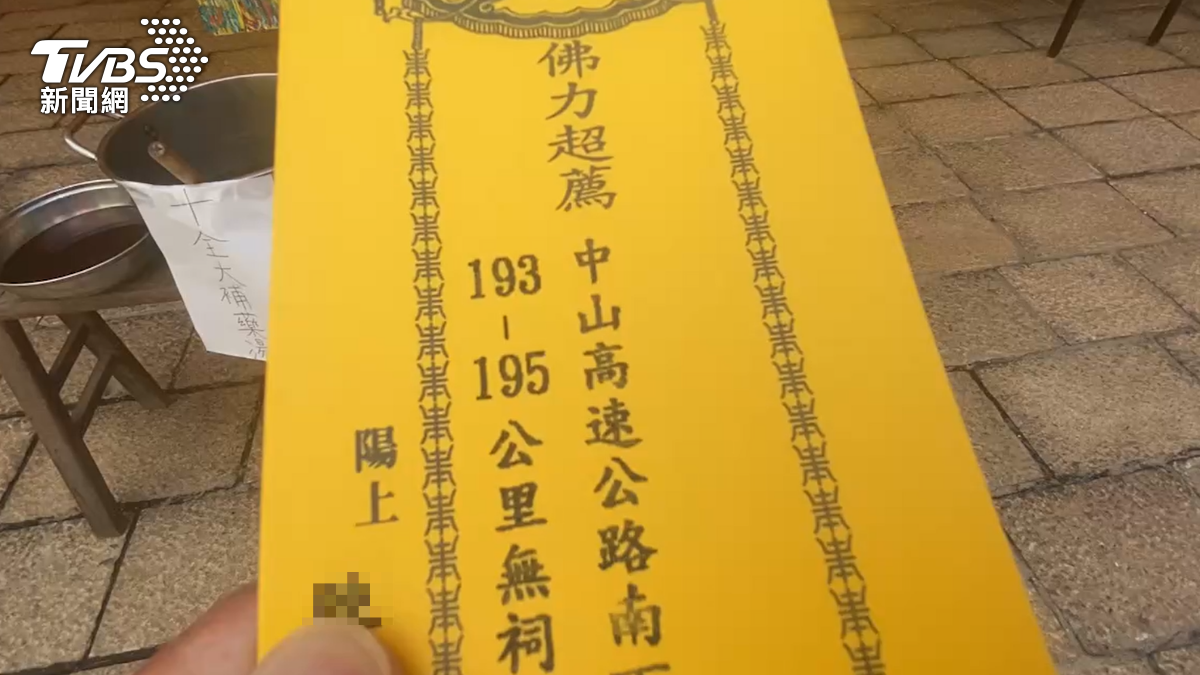 TVBS
新聞網
佛力超薦
中山高速公路南
193-195公里無祠
陽上
十全大補藥湯